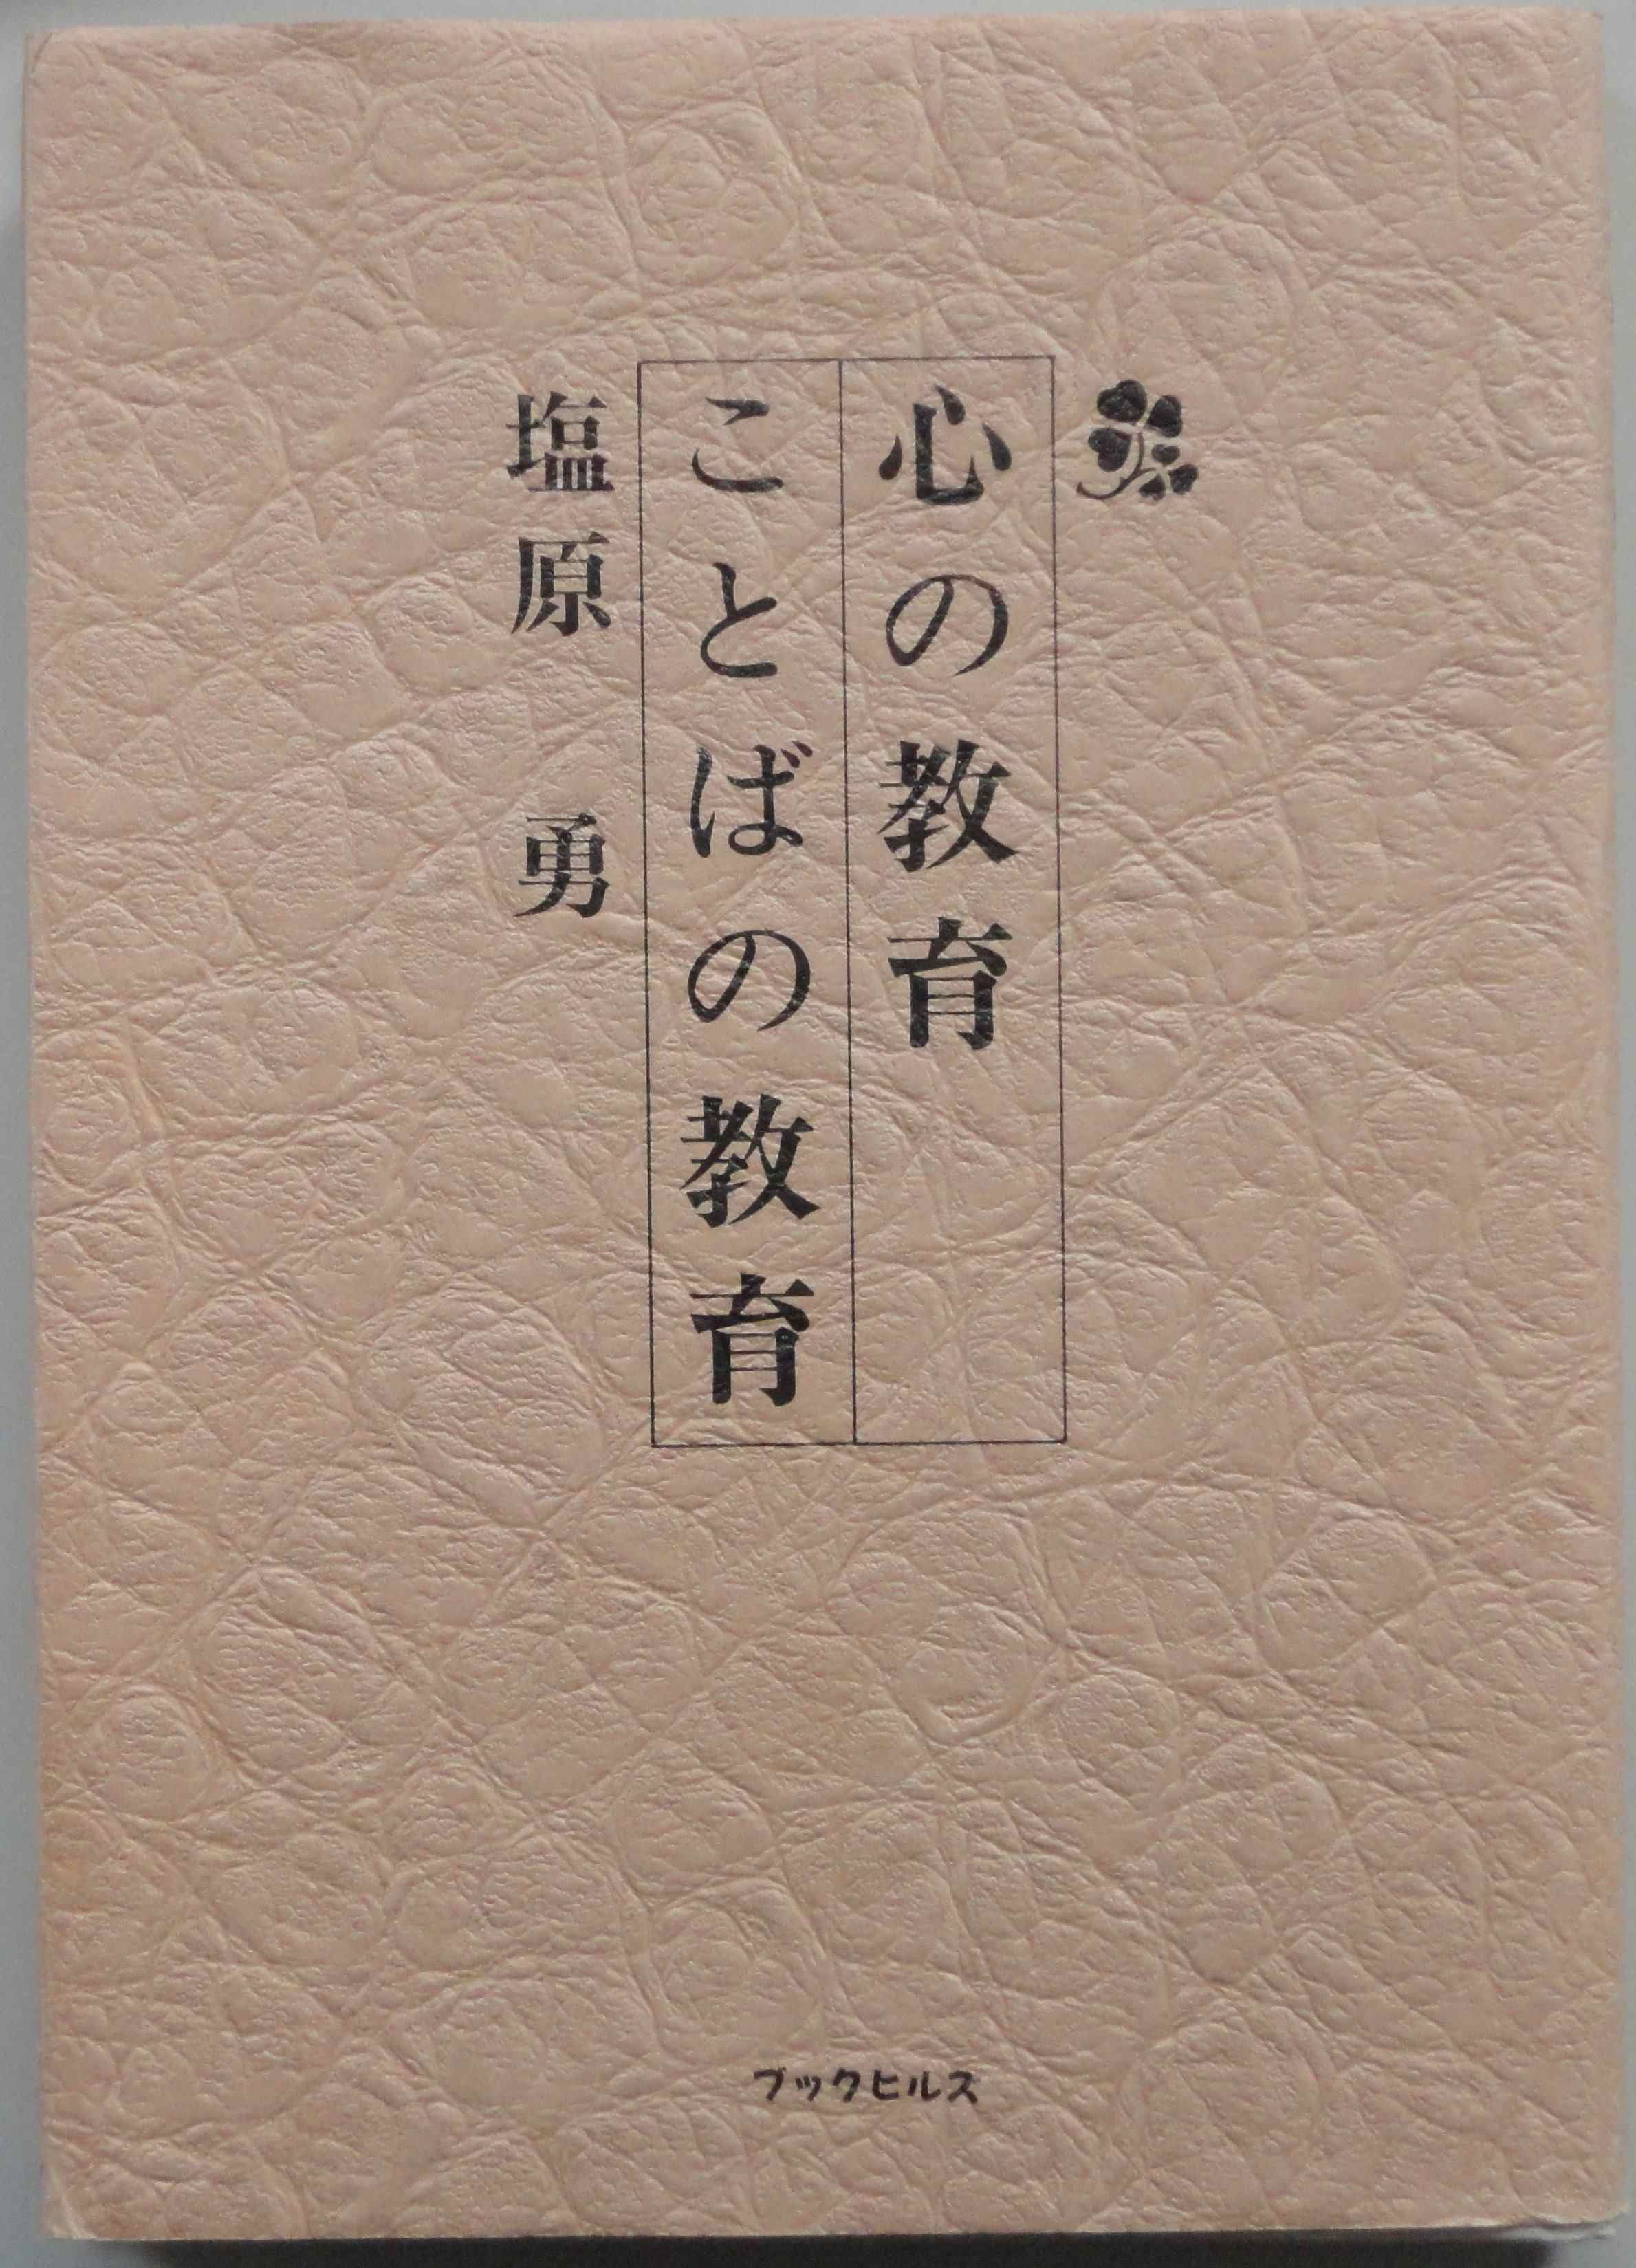 心の教育
ことばの教育
塩原 勇
ブックヒルス